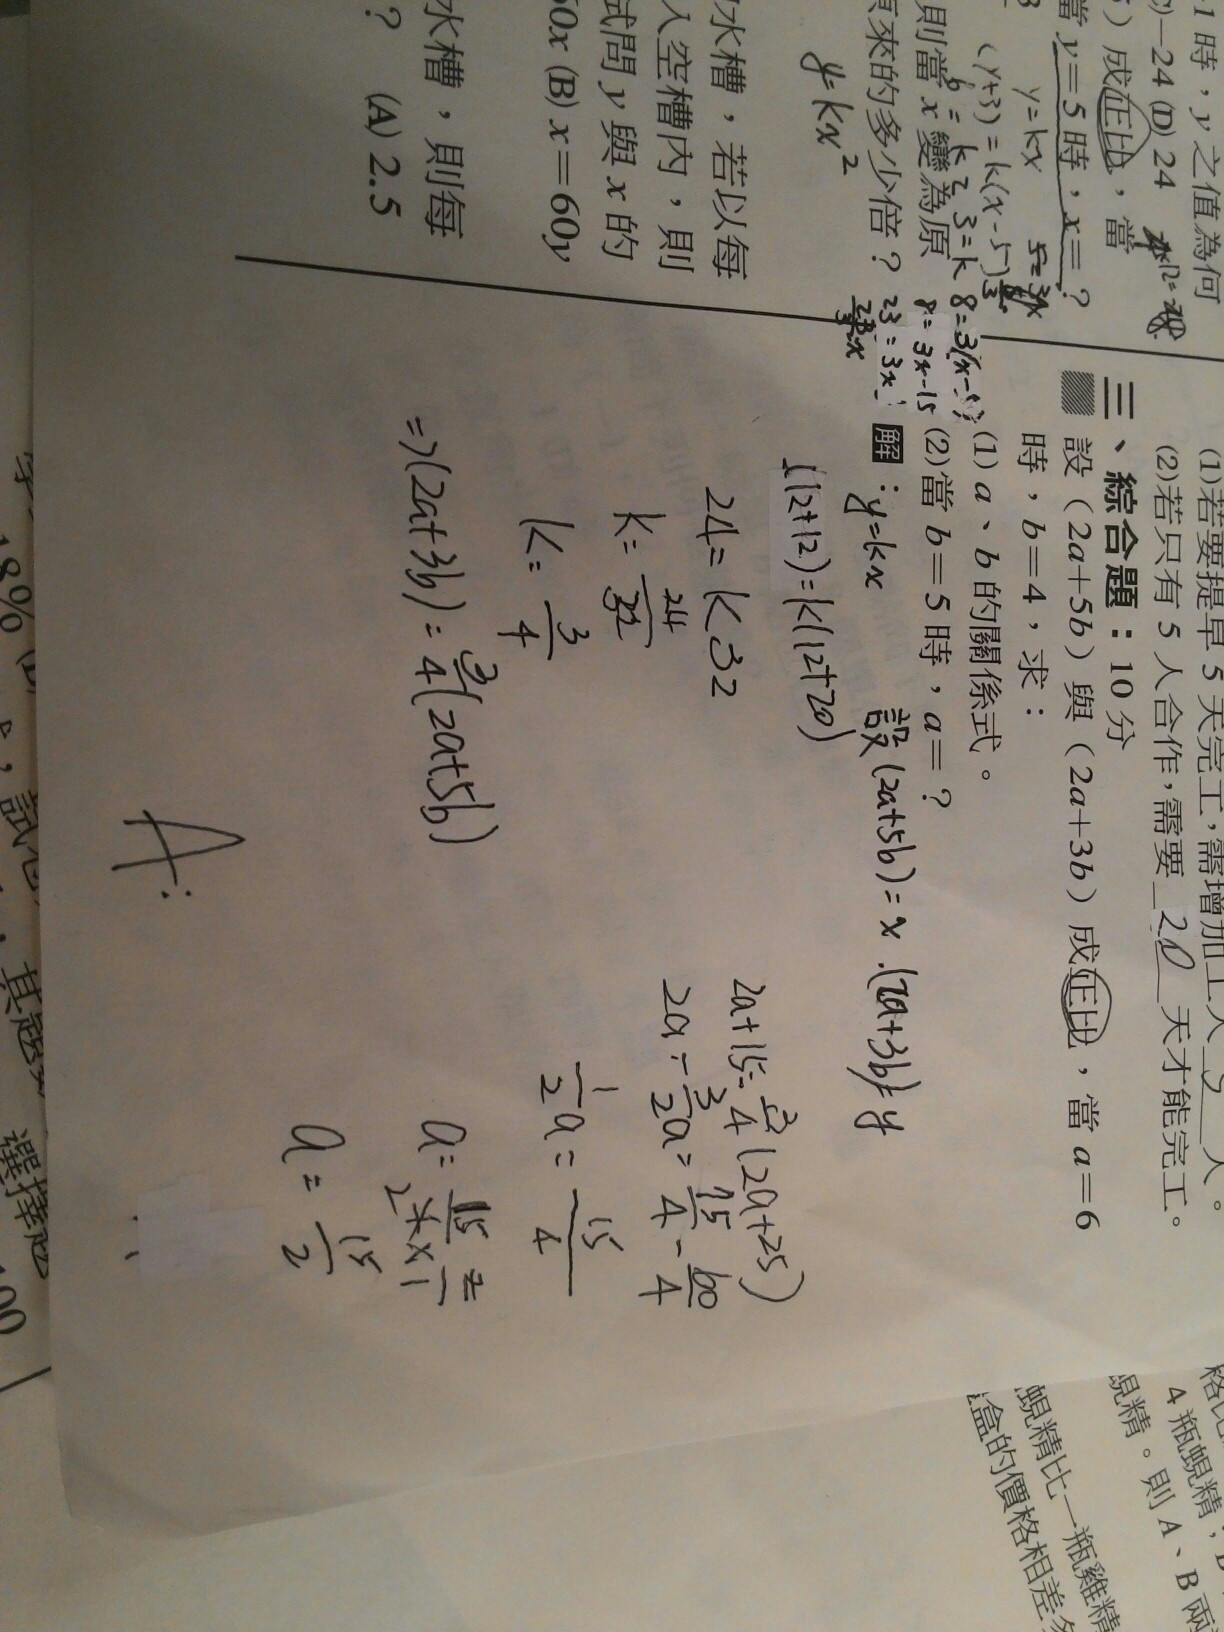 1時，y之值為何
)−24 (D) 24
）成正比，當
當 y＝5時，x＝？
y=kx
(y+3)=k(x-5)
則當 x 變為原
來的多少倍？
y=kx²
水槽，若以每
入空槽內，則
試問 y 與 x 的
60x (B) x＝60y
水槽，則每
？ (A) 2.5
3=k
8=3(x-5)
8=3x-15
23=3x
(1)若要提早 5 天完工，需增加工人 5 人。
(2)若只有 5 人合作，需要 20 天才能完工。
三、綜合題：10 分
設（2a＋5b）與（2a＋3b）成正比，當 a＝6
時，b＝4，求：
(1) a、b 的關係式。
(2)當 b＝5時，a＝？
解：y=kx 設(2a+5b)=x .(2a+3b)=y
(12+12)=k(12+20)
24=k32
k=24/32
k=3/4
=>(2a+3b)=3/4(2a+5b)
2a+15=3/4(2a+25)
2a-3/2a=75/4-60/4
1/2a=15/4
a=15/4×2/1
a=15/2
A:
4 瓶蜆精，
蜆精。則 A、B 兩
蜆精比一瓶雞精
盒的價格相差
18%
，試
選擇題